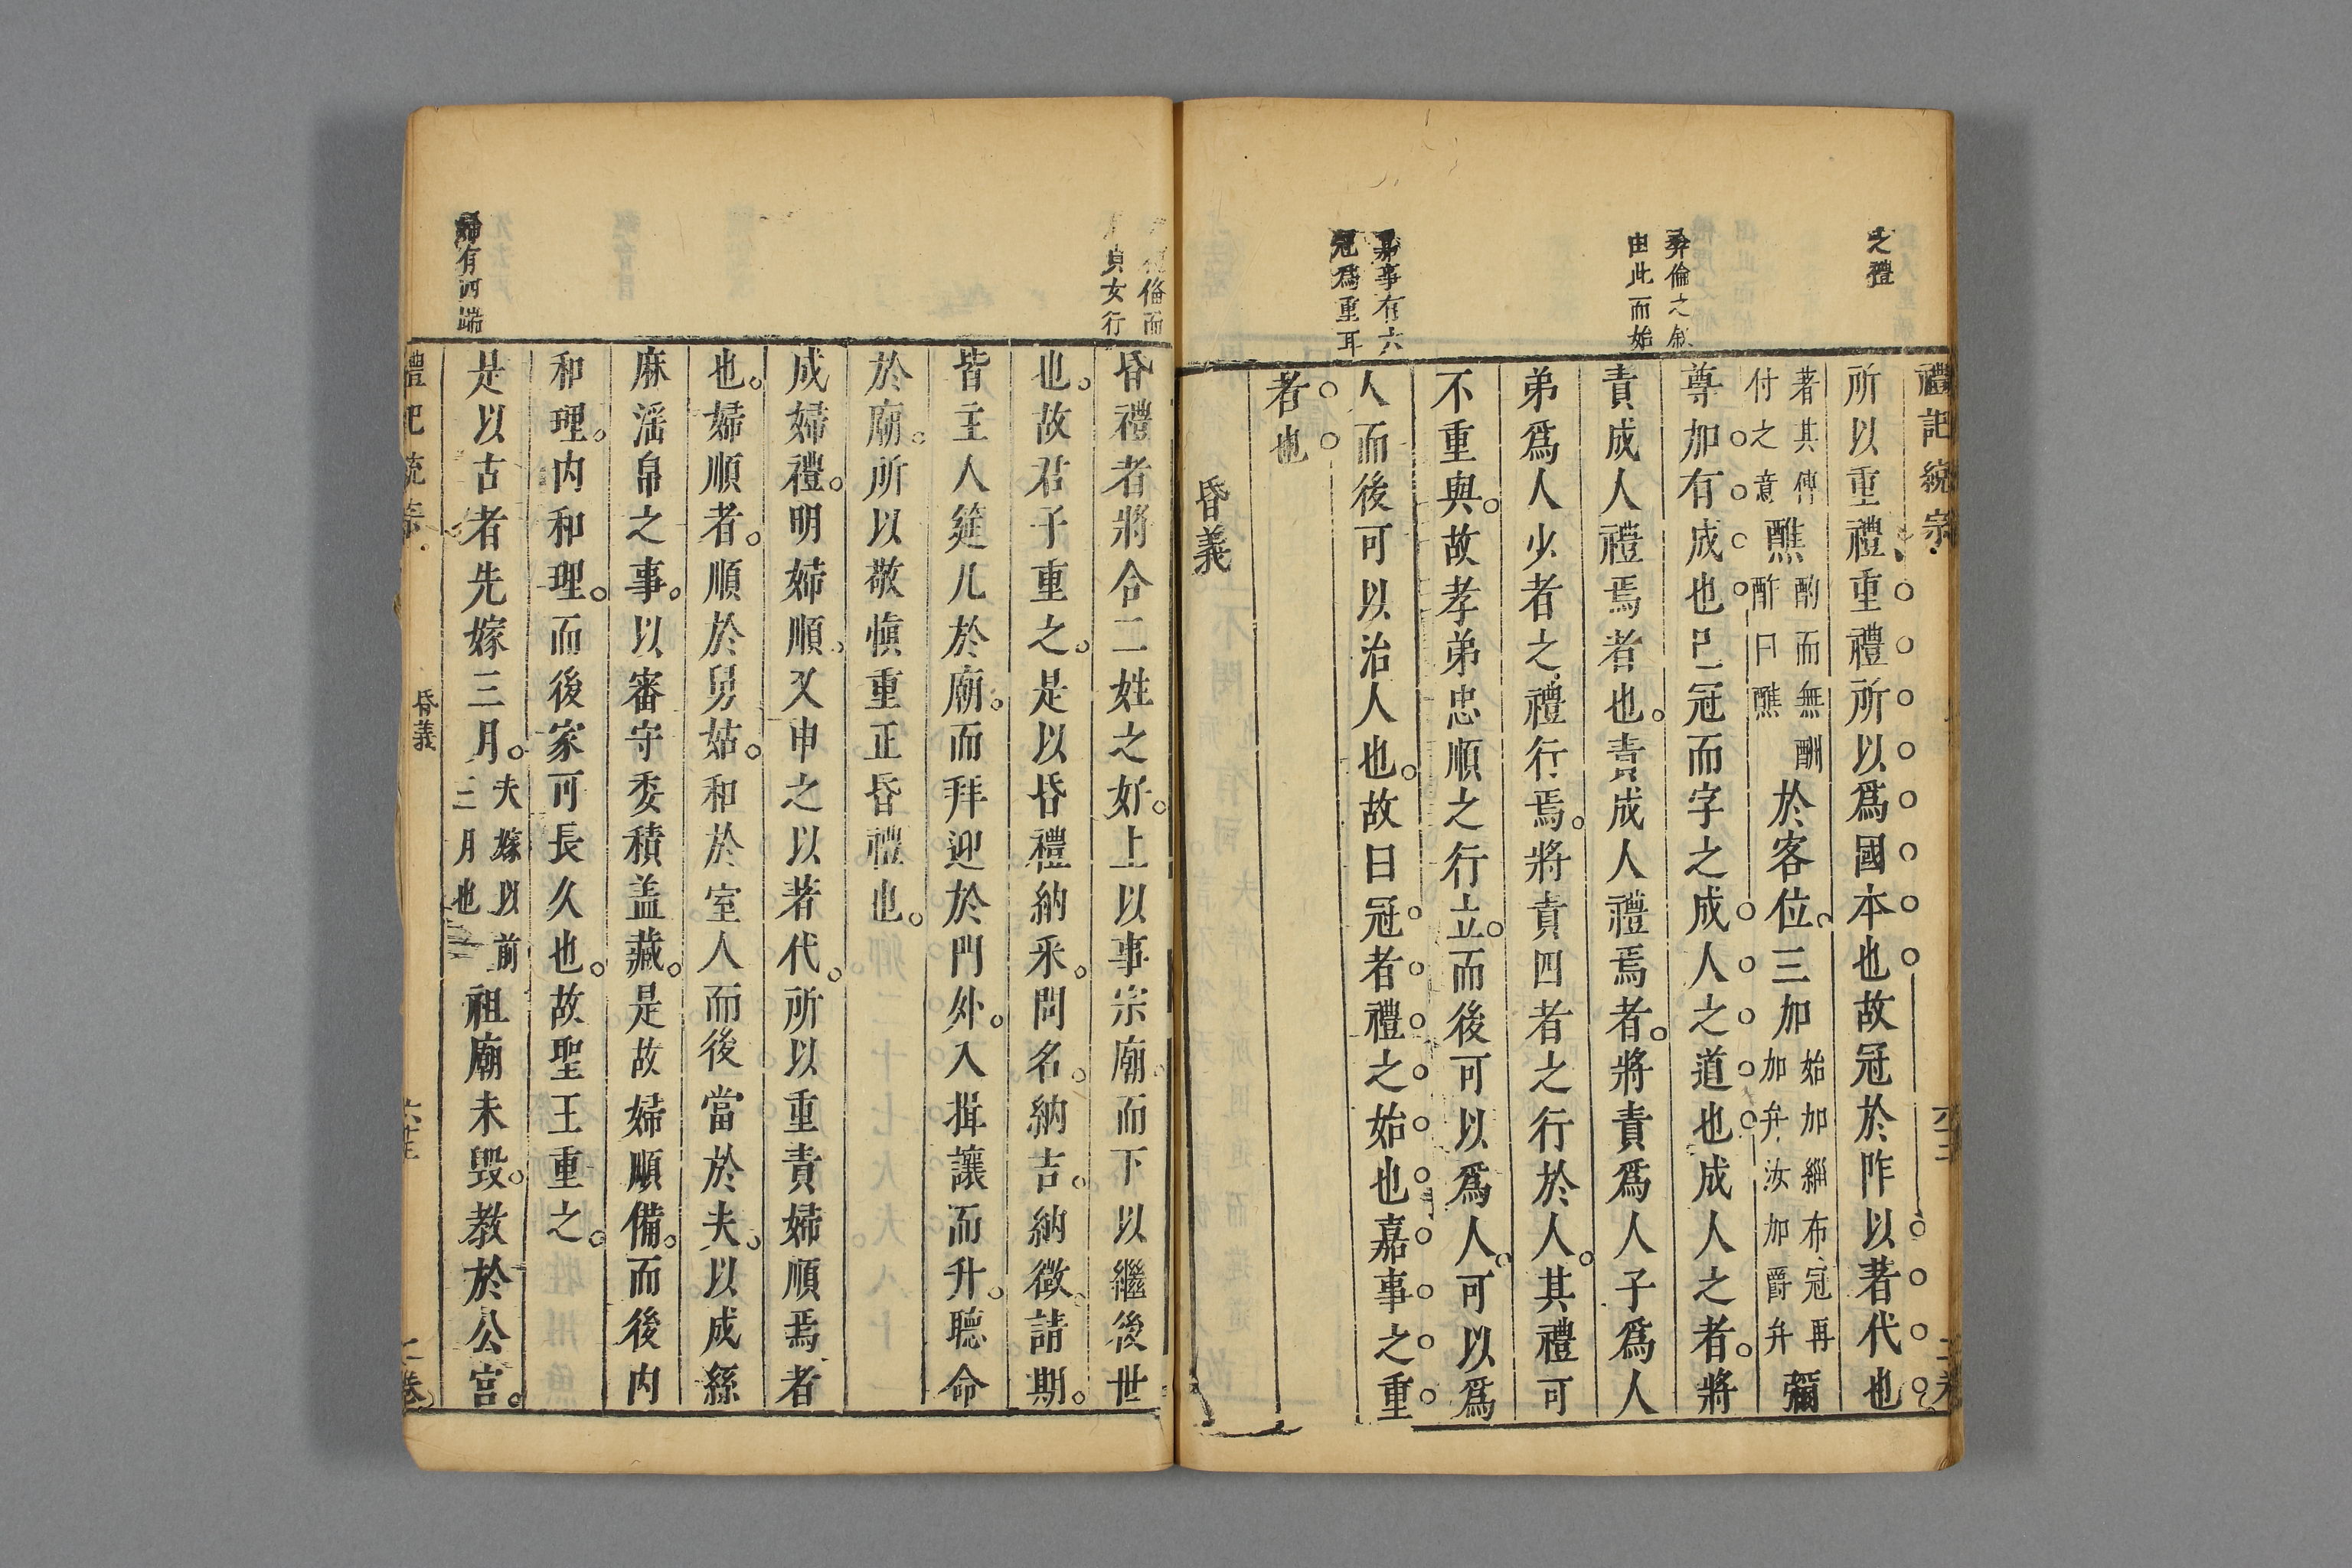 禮記統宗
之禮
彛倫之叙
由此而始
嘉事有六
冠爲重耳
所以重禮重禮所以爲國本也故冠於阼以著代也
著其傳
付之意
醮
酌而無酬
酢曰醮
於客位三加
始加緇布冠再
加弁汝加爵弁
彌
尊加有成也已冠而字之成人之道也成人之者將
責成人禮焉者也責成人禮焉者將責爲人子爲人
弟爲人少者之禮行焉將責四者之行於人其禮可
不重與故孝弟忠順之行立而後可以爲人可以爲
人而後可以治人也故曰冠者禮之始也嘉事之重
者也
昏義
倫而
貞女行
婦有四端
昏禮者將合二姓之好上以事宗廟而下以繼後世
也故君子重之是以昏禮納采問名納吉納徵請期
皆主人筵几於廟而拜迎於門外入揖讓而升聽命
於廟所以敬愼重正昏禮也
成婦禮明婦順又申之以著代所以重責婦順焉者
也婦順者順於舅姑和於室人而後當於夫以成絲
麻滛帛之事以審守委積盖藏是故婦順備而後内
和理内和理而後家可長久也故聖王重之
是以古者先嫁三月
夫嫁以前
三月也
祖廟未毀教於公宮
禮記統宗
昏義